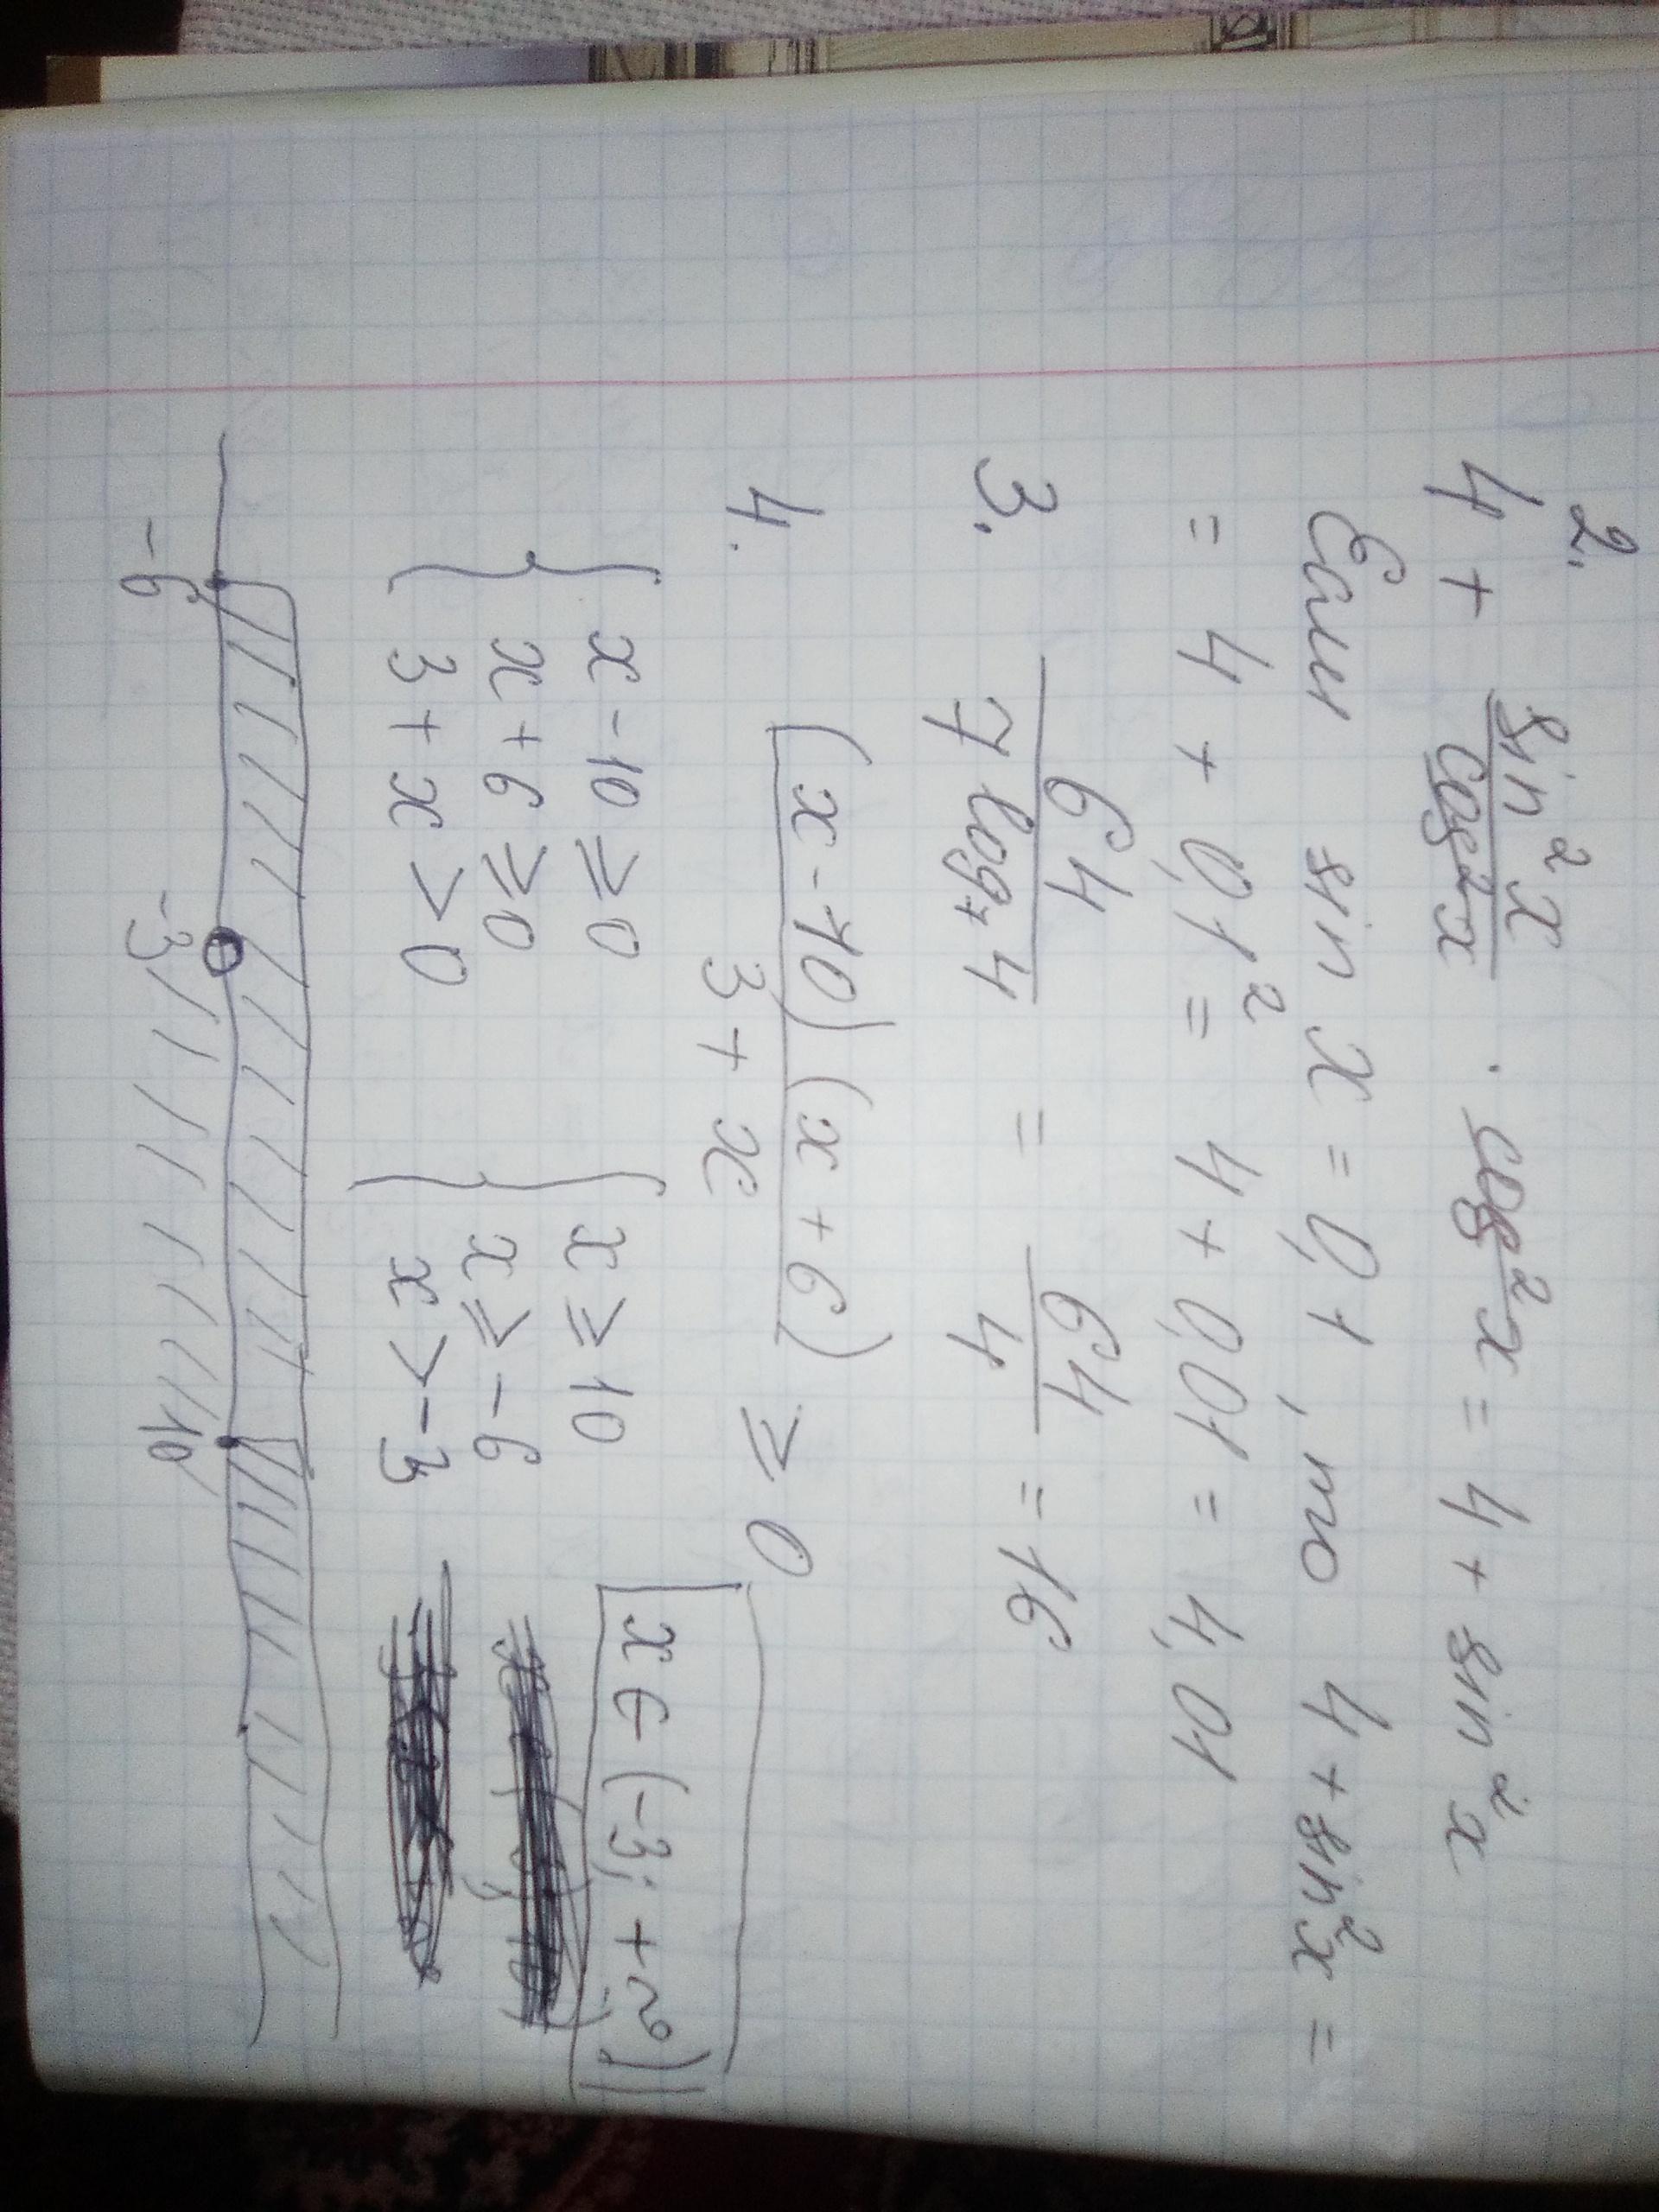 2.
4 + sin²x / cos²x · cos²x = 4 + sin²x
Если sin x = 0,1, то 4 + sin²x =
= 4 + 0,1² = 4 + 0,01 = 4,01
3. 64 / 7 log₇ 4 = 64 / 4 = 16
4. (x - 10) (x + 6) / 3 + x ≥ 0
{ x - 10 ≥ 0 { x ≥ 10 x ∈ (-3; +∞)
x + 6 ≥ 0 x ≥ -6
3 + x > 0 x > -3
-6 -3 10